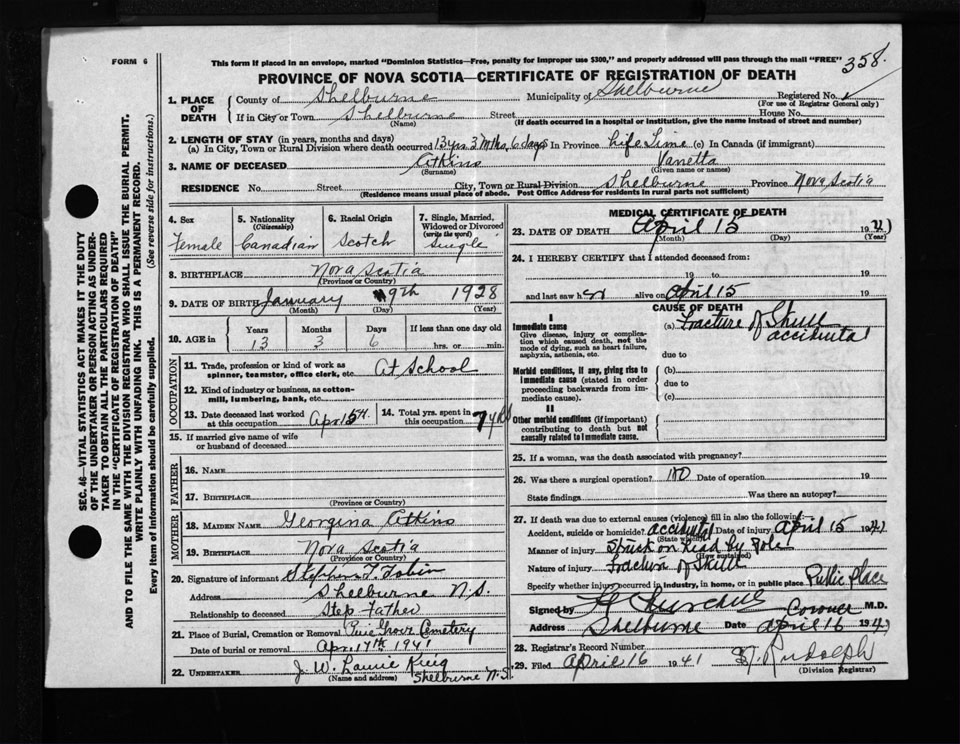 FORM 6
This form if placed in an envelope, marked "Dominion Statistics—Free, penalty for improper use $300," and properly addressed will pass through the mail "FREE"
358.
PROVINCE OF NOVA SCOTIA—CERTIFICATE OF REGISTRATION OF DEATH
1. PLACE OF DEATH
County of Shelburne Municipality of Shelburne Registered No.
(For use of Registrar General only)
If in City or Town Shelburne Street House No.
(Name) (If death occurred in a hospital or institution, give the name instead of street and number)
2. LENGTH OF STAY (in years, months and days)
(a) In City, Town or Rural Division where death occurred 13 yrs 3 Mths, 6 days In Province Life Time (c) In Canada (if immigrant)
3. NAME OF DECEASED Atkins Vanetta
(Surname) (Given name or names)
RESIDENCE No. Street City, Town or Rural Division Shelburne Province Nova Scotia
(Residence means usual place of abode. Post Office Address for residents in rural parts not sufficient)
4. Sex
Female
5. Nationality
(Citizenship)
Canadian
6. Racial Origin
Scotch
7. Single, Married, Widowed or Divorced
(write the word)
Single
8. BIRTHPLACE Nova Scotia
(Province or Country)
9. DATE OF BIRTH January 9th 1928
(Month) (Day) (Year)
10. AGE in
Years Months Days If less than one day old
13 3 6 hrs. or min.
OCCUPATION
11. Trade, profession or kind of work as spinner, teamster, office clerk, etc. At School
12. Kind of industry or business, as cotton-mill, lumbering, bank, etc.
13. Date deceased last worked at this occupation Apr 15th.
14. Total yrs. spent in this occupation 7 yrs
15. If married give name of wife or husband of deceased
FATHER
16. NAME
17. BIRTHPLACE
(Province or Country)
MOTHER
18. MAIDEN NAME Georgina Atkins
19. BIRTHPLACE Nova Scotia
(Province or Country)
20. Signature of informant Stephen T. Tobin
Address Shelburne N.S.
Relationship to deceased Step Father
21. Place of Burial, Cremation or Removal Pine Grove Cemetery
Date of burial or removal Apr. 17th 1941
22. UNDERTAKER J. W. Laurie King
(Name and address) Shelburne N.S.
MEDICAL CERTIFICATE OF DEATH
23. DATE OF DEATH April 15 1941
(Month) (Day) (Year)
24. I HEREBY CERTIFY that I attended deceased from:
19 to 19
and last saw her alive on April 15 19
CAUSE OF DEATH
I
Immediate cause
Give disease, injury or complication which caused death, not the mode of dying, such as heart failure, asphyxia, asthenia, etc.
(a) Fracture of Skull
accidental
due to
Morbid conditions, if any, giving rise to immediate cause (stated in order proceeding backwards from immediate cause).
(b)
due to
(c)
II
Other morbid conditions (if important) contributing to death but not causally related to immediate cause.
25. If a woman, was the death associated with pregnancy?
26. Was there a surgical operation? No Date of operation 19
State findings Was there an autopsy?
27. If death was due to external causes (violence) fill in also the following:
Accident, suicide or homicide? accidental Date of injury April 15 1941
(State which)
Manner of injury Struck on head by Pole
(How sustained)
Nature of injury Fracture of Skull
Specify whether injury occurred in industry, in home, or in public place Public Place
Signed by Churchill Coroner M.D.
Address Shelburne Date April 16 1941
28. Registrar's Record Number
29. Filed April 16 1941 Rudolph
(Division Registrar)
SEC. 46—VITAL STATISTICS ACT MAKES IT THE DUTY
OF THE UNDERTAKER OR PERSON ACTING AS UNDER-
TAKER TO OBTAIN ALL THE PARTICULARS REQUIRED
IN THE "CERTIFICATE OF REGISTRATION OF DEATH"
AND TO FILE THE SAME WITH THE DIVISION REGISTRAR WHO SHALL ISSUE THE BURIAL PERMIT.
WRITE PLAINLY WITH UNFADING INK. THIS IS A PERMANENT RECORD.
Every item of information should be carefully supplied. (See reverse side for instructions.)